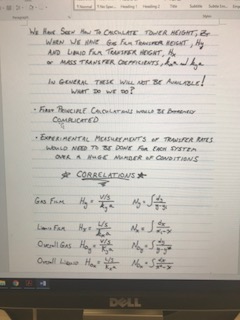 WE HAVE SEEN HOW TO CALCULATE TOWER HEIGHT, Z_T
WHEN WE HAVE GAS FILM TRANSFER HEIGHT, H_y
AND LIQUID FILM TRANSFER HEIGHT, H_x
OR MASS TRANSFER COEFFICIENTS, k_xa AND k_ya
IN GENERAL THESE WILL NOT BE AVAILABLE!
WHAT DO WE DO?
• FIRST PRINCIPLE CALCULATIONS WOULD BE EXTREMELY
COMPLICATED
• EXPERIMENTAL MEASUREMENTS OF TRANSFER RATES
WOULD NEED TO BE DONE FOR EACH SYSTEM
OVER A HUGE NUMBER OF CONDITIONS
* CORRELATIONS *
GAS FILM H_y = V/S / k_ya N_y = ∫ dy / y-y_i
LIQUID FILM H_x = L/S / k_xa N_x = ∫ dx / x_i-x
OVERALL GAS H_Oy = V/S / K_ya N_Oy = ∫ dy / y-y*
OVERALL LIQUID H_Ox = L/S / K_xa N_Ox = ∫ dx / x*-x
DELL